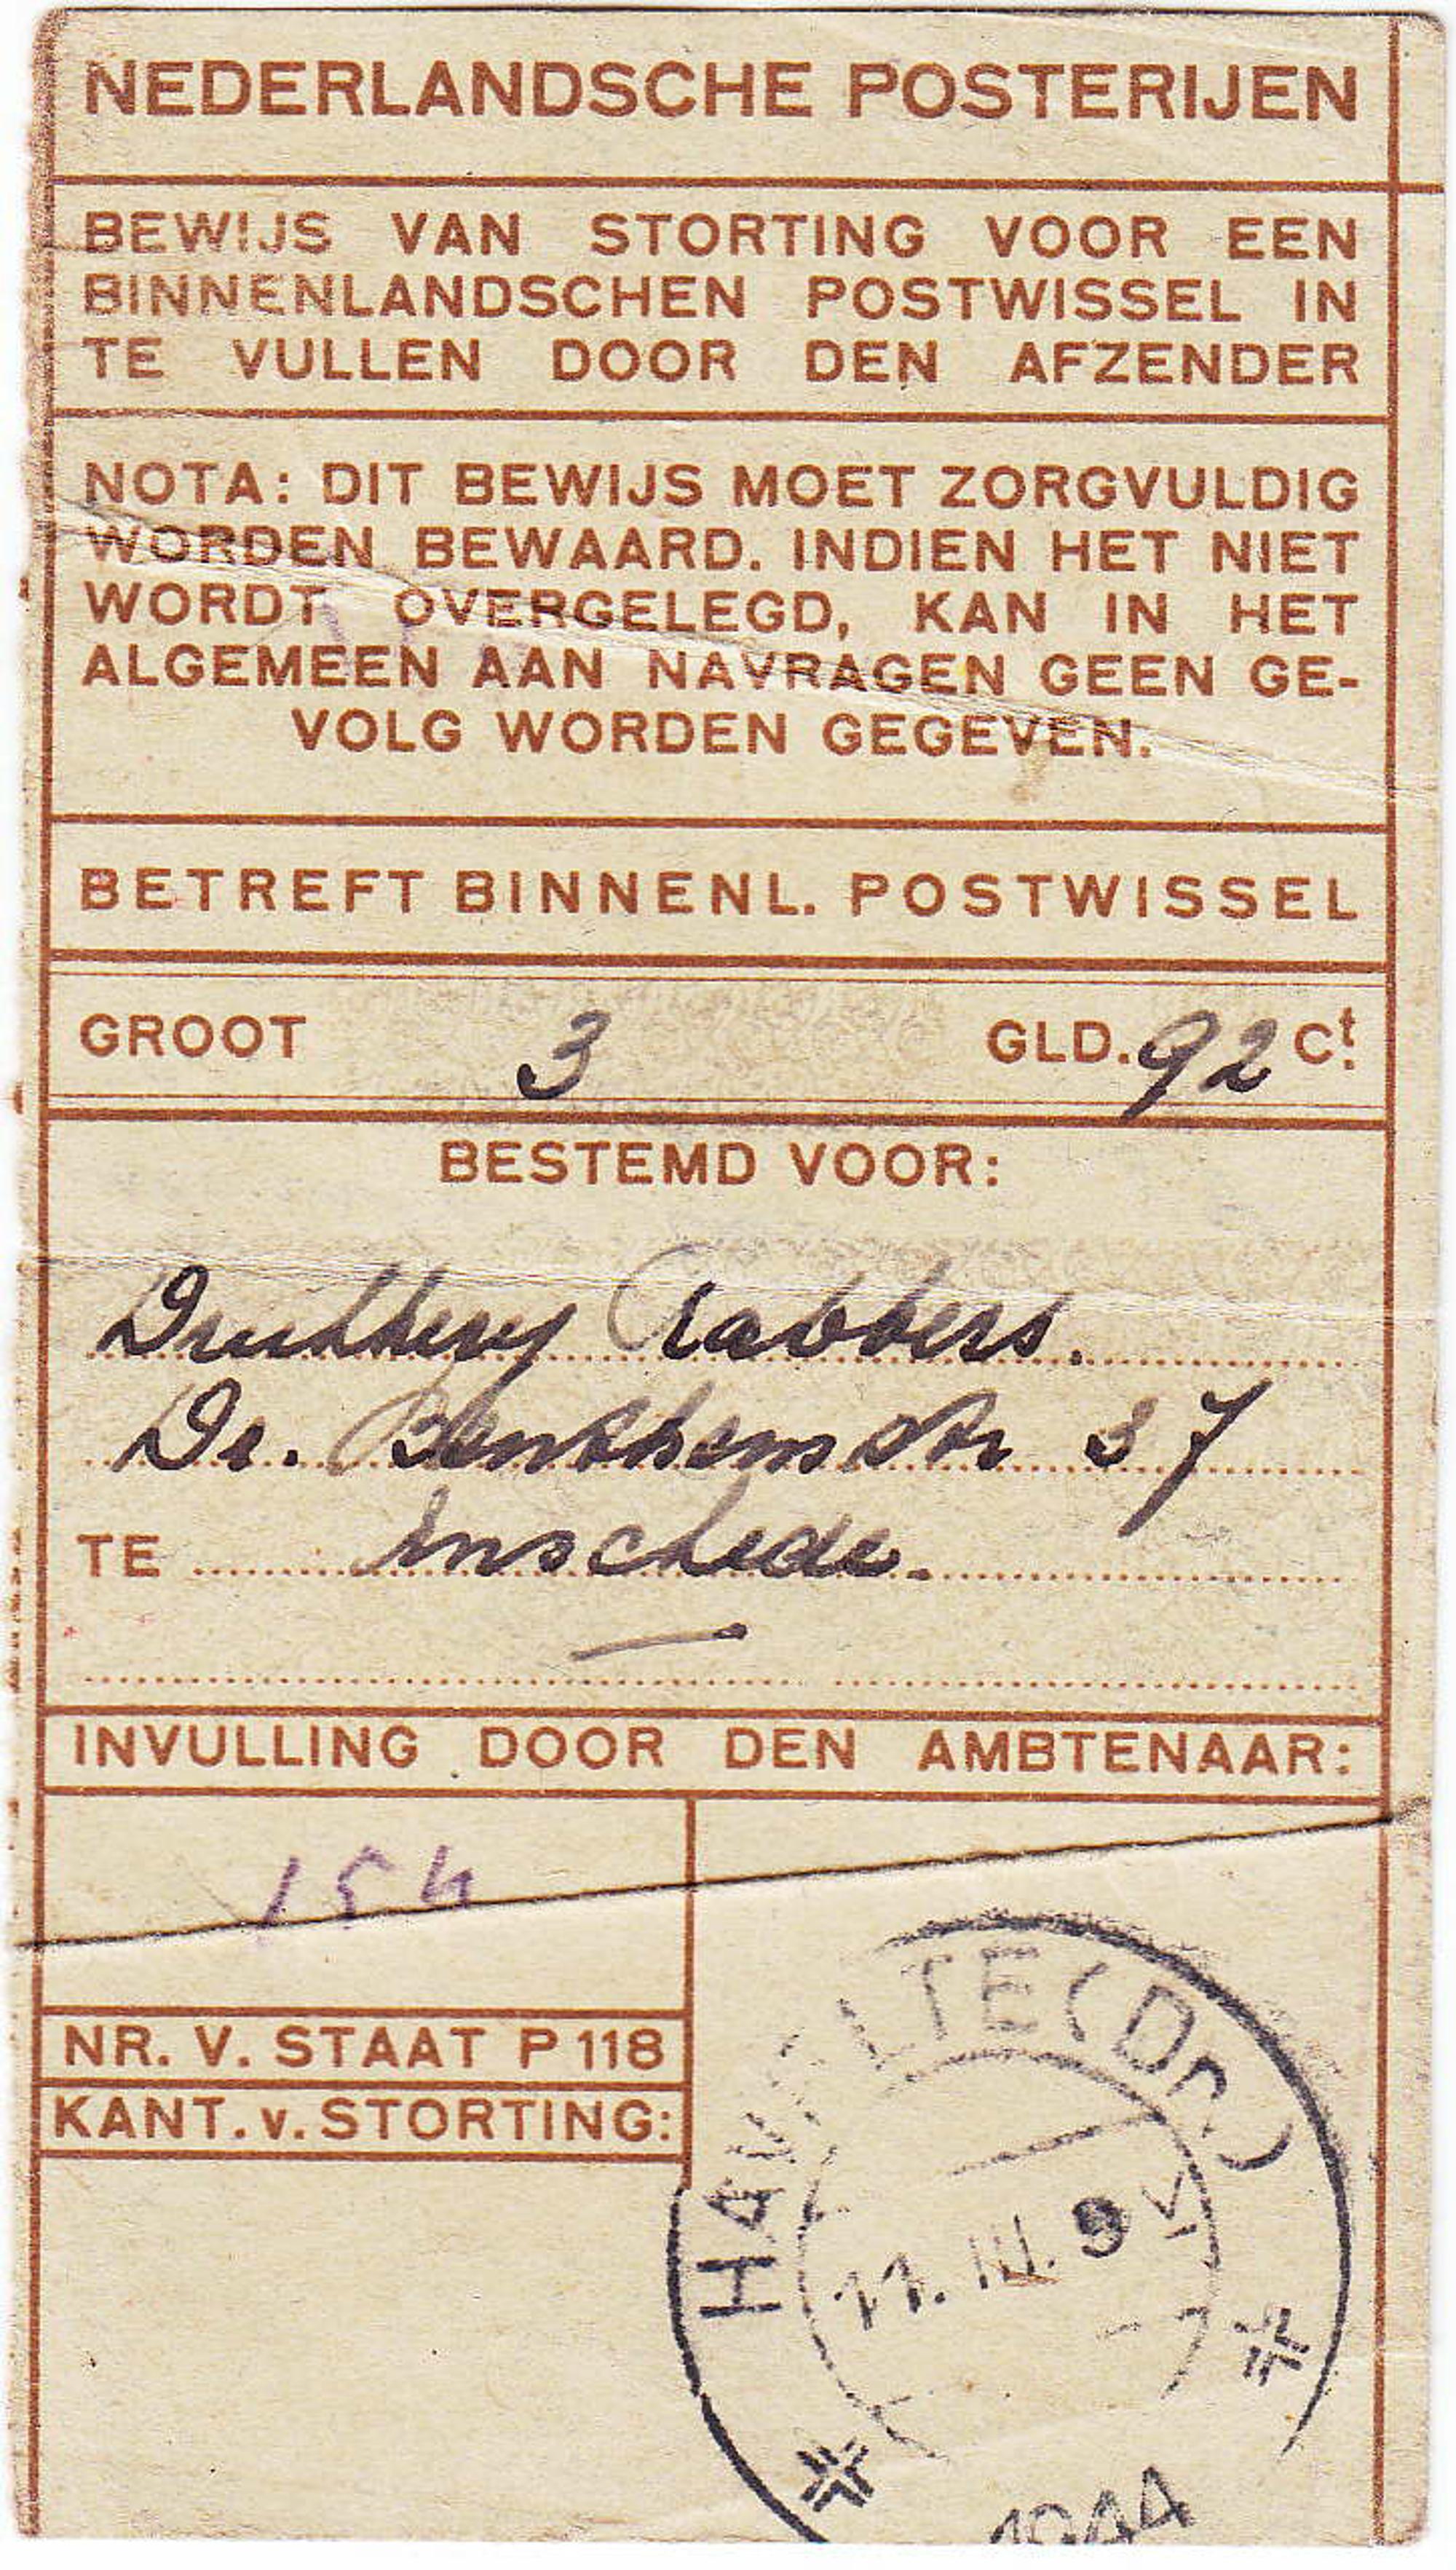 NEDERLANDSCHE POSTERIJEN
BEWIJS VAN STORTING VOOR EEN
BINNENLANDSCHEN POSTWISSEL IN
TE VULLEN DOOR DEN AFZENDER
NOTA: DIT BEWIJS MOET ZORGVULDIG
WORDEN BEWAARD. INDIEN HET NIET
WORDT OVERGELEGD, KAN IN HET
ALGEMEEN AAN NAVRAGEN GEEN GE-
VOLG WORDEN GEGEVEN.
BETREFT BINNENL. POSTWISSEL
GROOT 3 GLD. 92 Ct.
BESTEMD VOOR:
Drukkery Rabbers.
Dr. Benthemstr 37
TE Enschede.
INVULLING DOOR DEN AMBTENAAR:
154
NR. V. STAAT P 118
KANT. v. STORTING:
HAVELTE (Dr.)
11. III. 9 V
1944